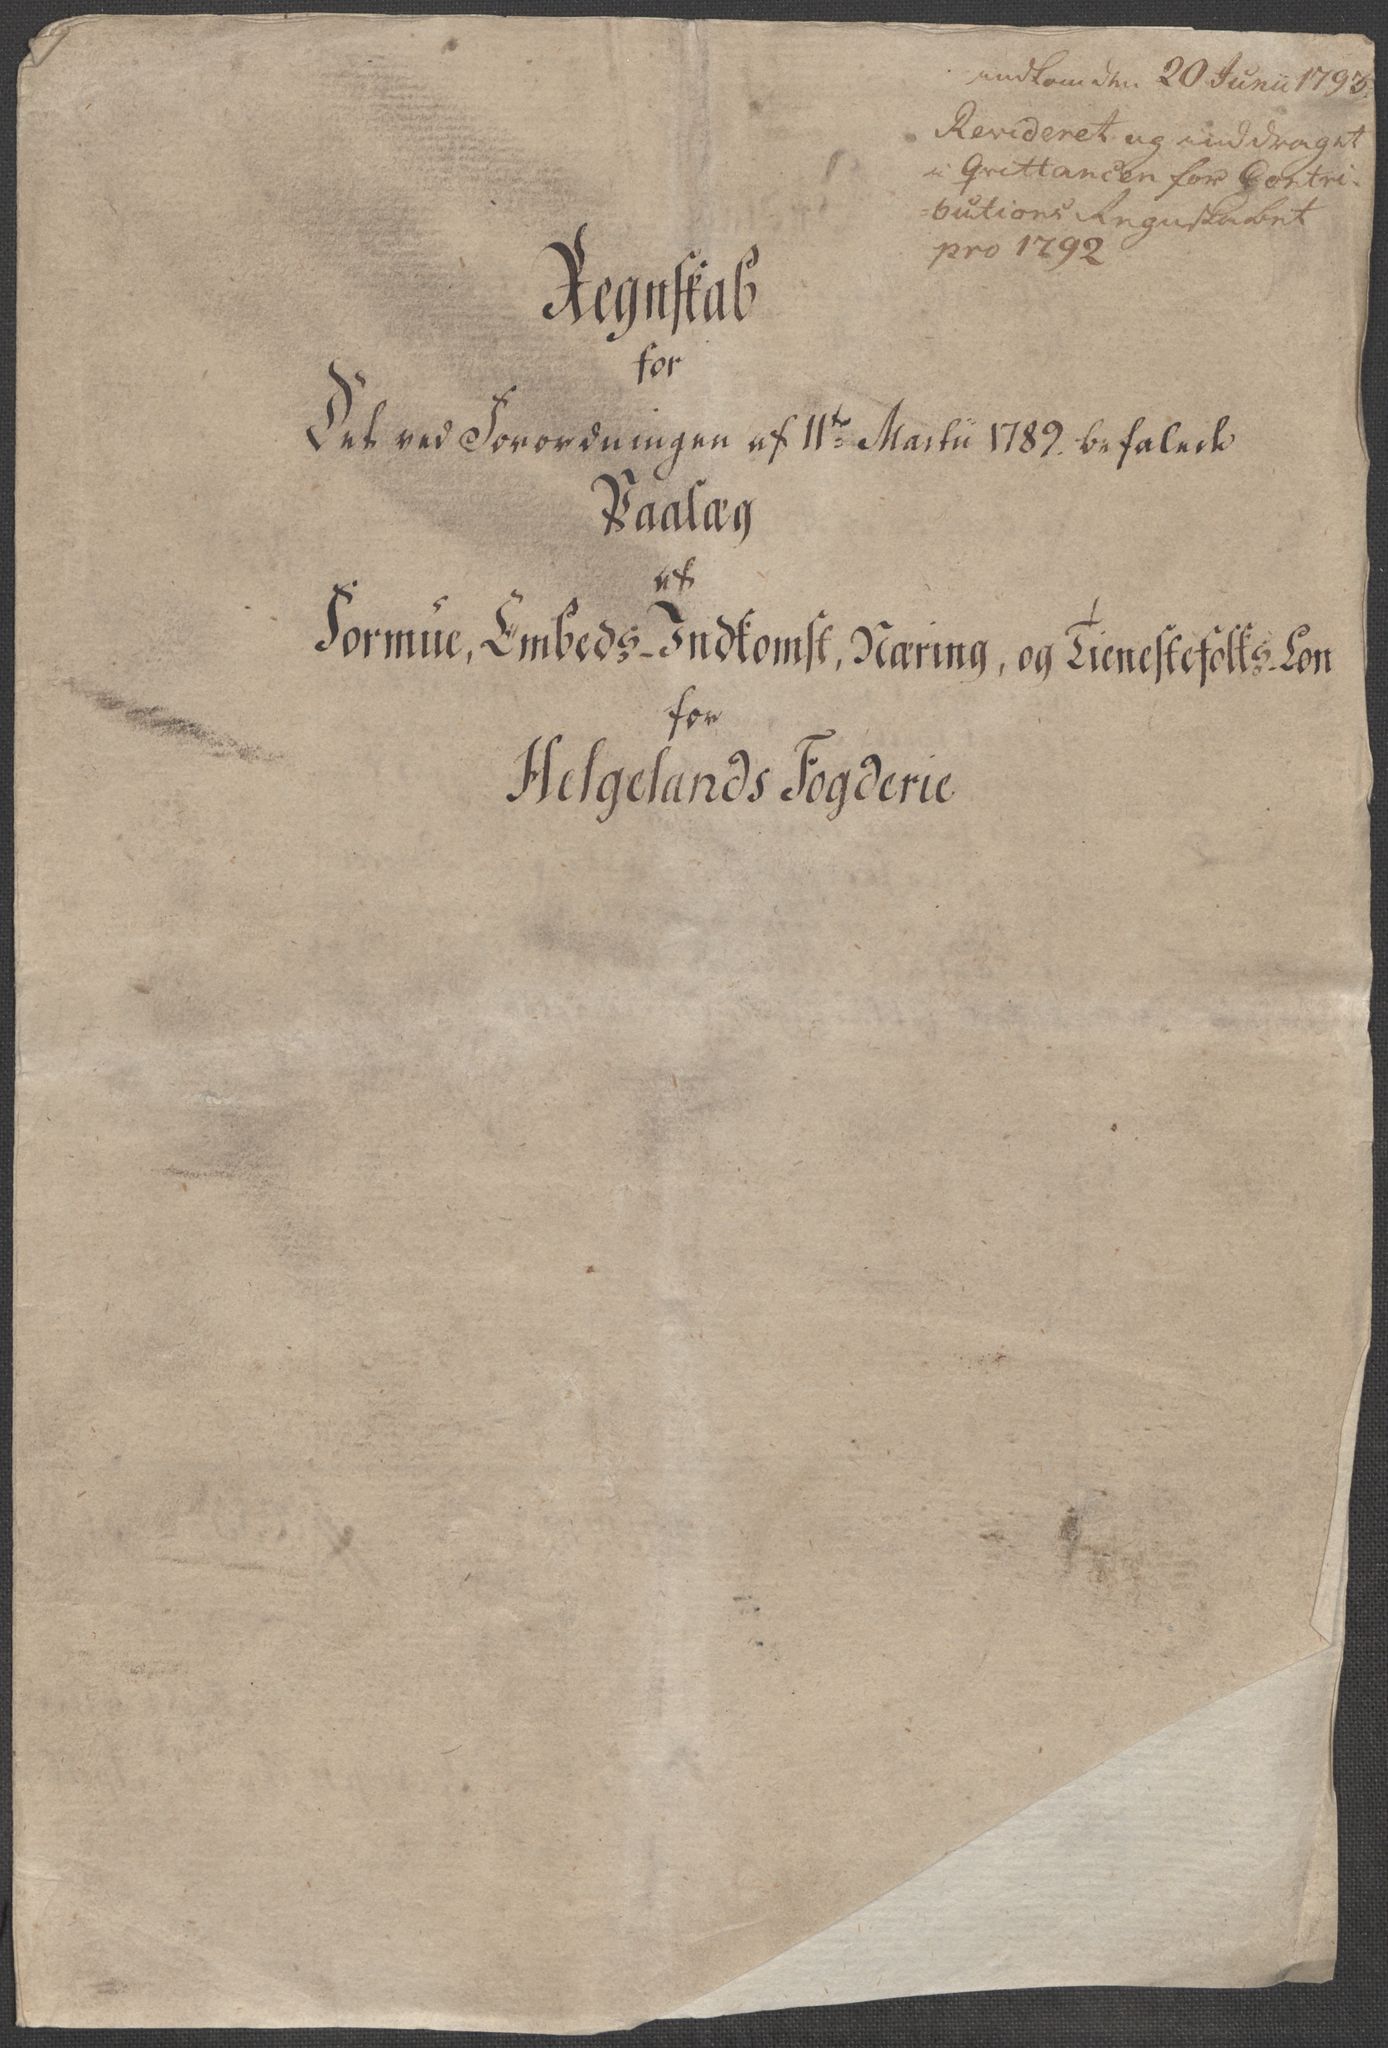 indkom den 20 Junii 1793.
Revideret og inddraget
i Qvittancen for Contri-
-butions Regnskabet
pro 1792
Regnskab
for
Det ved Forordningen af 11te Martii 1789. befalede
Paalæg
af
Formue, Embeds-Indkomst, Næring, og Tienestefolks-Løn
for
Helgelands Fogderie